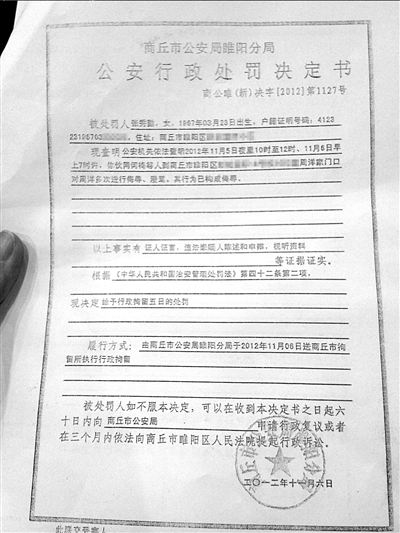 商丘市公安局睢阳分局
公安行政处罚决定书
商公睢(新)决字[2012]第1127号
被处罚人 女，1967年03月23日出生，户籍证明号码：4123
住址：商丘市睢阳区
现查明 公安机关依法查明2012年11月5日夜里10时至12时、11月6日早
上7时许，你伙同 等人到商丘市睢阳区 家门口
对 多次进行侮辱、谩骂，其行为已构成侮辱。
以上事实有 证人证言，违法嫌疑人陈述和申辩，视听资料
等证据证实。
根据 《中华人民共和国治安管理处罚法》第四十二条第二项，
现决定 给予行政拘留五日的处罚
履行方式： 由商丘市公安局睢阳分局于2012年11月06日送商丘市拘
留所执行行政拘留
被处罚人如不服本决定，可以在收到本决定书之日起六
十日内向 商丘市公安局 申请行政复议或者
在三个月内依法向商丘市睢阳区人民法院提起行政诉讼。
二〇一二年十一月六日